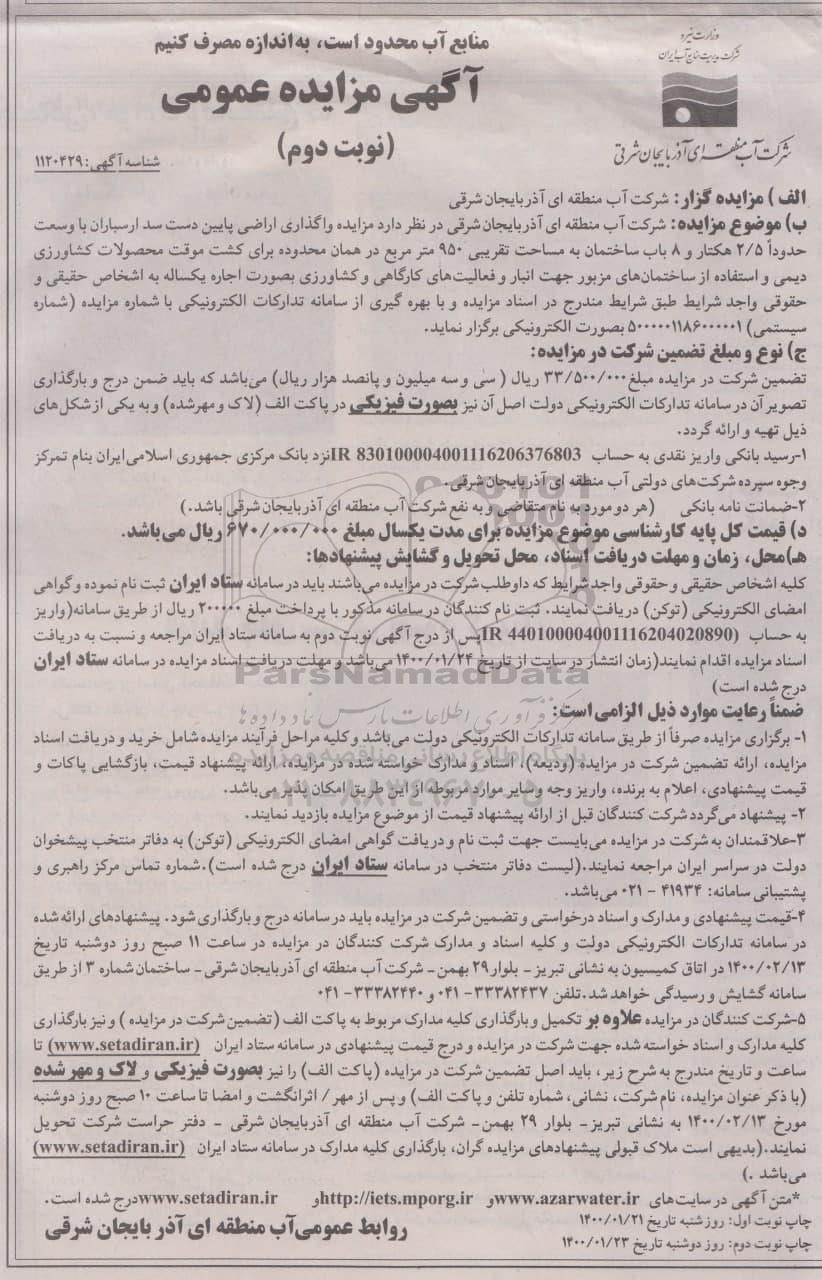 منابع آب محدود است، به اندازه مصرف کنیم
وزارت نیرو
شرکت مدیریت منابع آب ایران
آگهی مزایده عمومی
(نوبت دوم)
شرکت آب منطقه ای آذربایجان شرقی
شناسه آگهی: ۱۱۲۰۴۲۹
الف ) مزایده گزار: شرکت آب منطقه ای آذربایجان شرقی
ب) موضوع مزایده: شرکت آب منطقه ای آذربایجان شرقی در نظر دارد مزایده واگذاری اراضی پایین دست سد ارسباران با وسعت
حدوداً ۲/۵ هکتار و ۸ باب ساختمان به مساحت تقریبی ۹۵۰ متر مربع در همان محدوده برای کشت موقت محصولات کشاورزی
دیمی و استفاده از ساختمان‌های مزبور جهت انبار و فعالیت‌های کارگاهی و کشاورزی بصورت اجاره یکساله به اشخاص حقیقی و
حقوقی واجد شرایط طبق شرایط مندرج در اسناد مزایده و با بهره گیری از سامانه تدارکات الکترونیکی با شماره مزایده (شماره
سیستمی) ۵۰۰۰۰۰۱۱۸۶۰۰۰۰۰۱ بصورت الکترونیکی برگزار نماید.
ج) نوع و مبلغ تضمین شرکت در مزایده:
تضمین شرکت در مزایده مبلغ ۳۳/۵۰۰/۰۰۰ ریال ( سی و سه میلیون و پانصد هزار ریال) می‌باشد که باید ضمن درج و بارگذاری
تصویر آن در سامانه تدارکات الکترونیکی دولت اصل آن نیز بصورت فیزیکی در پاکت الف (لاک و مهر شده) و به یکی از شکل های
ذیل تهیه و ارائه گردد.
۱-رسید بانکی واریز نقدی به حساب IR 830100004001116206376803 نزد بانک مرکزی جمهوری اسلامی ایران بنام تمرکز
وجوه سپرده شرکت‌های دولتی آب منطقه ای آذربایجان شرقی.
۲-ضمانت نامه بانکی (هر دو مورد به نام متقاضی و به نفع شرکت آب منطقه ای آذربایجان شرقی باشد.)
د) قیمت کل پایه کارشناسی موضوع مزایده برای مدت یکسال مبلغ ۶۷۰/۰۰۰/۰۰۰ ریال می‌باشد.
هـ)محل، زمان و مهلت دریافت اسناد، محل تحویل و گشایش پیشنهادها:
کلیه اشخاص حقیقی و حقوقی واجد شرایط که داوطلب شرکت در مزایده می‌باشند باید در سامانه ستاد ایران ثبت نام نموده و گواهی
امضای الکترونیکی (توکن) دریافت نمایند. ثبت نام کنندگان در سامانه مذکور با پرداخت مبلغ ۲۰۰۰۰۰ ریال از طریق سامانه(واریز
به حساب (IR 440100004001116204020890 پس از درج آگهی نوبت دوم به سامانه ستاد ایران مراجعه و نسبت به دریافت
اسناد مزایده اقدام نمایند(زمان انتشار در سایت از تاریخ ۱۴۰۰/۰۱/۲۴ می‌باشد و مهلت دریافت اسناد مزایده در سامانه ستاد ایران
درج شده است)
ParsNamadData
ضمناً رعایت موارد ذیل الزامی است:
۱- برگزاری مزایده صرفاً از طریق سامانه تدارکات الکترونیکی دولت می‌باشد و کلیه مراحل فرآیند مزایده شامل خرید و دریافت اسناد
مزایده، ارائه تضمین شرکت در مزایده (ودیعه)، اسناد و مدارک خواسته شده در مزایده، ارائه پیشنهاد قیمت، بازگشایی پاکات و
قیمت پیشنهادی، اعلام به برنده، واریز وجه و سایر موارد مربوطه از این طریق امکان پذیر می‌باشد.
۲- پیشنهاد می‌گردد شرکت کنندگان قبل از ارائه پیشنهاد قیمت از موضوع مزایده بازدید نمایند.
۳-علاقمندان به شرکت در مزایده می‌بایست جهت ثبت نام و دریافت گواهی امضای الکترونیکی (توکن) به دفاتر منتخب پیشخوان
دولت در سراسر ایران مراجعه نمایند.(لیست دفاتر منتخب در سامانه ستاد ایران درج شده است).شماره تماس مرکز راهبری و
پشتیبانی سامانه: ۴۱۹۳۴ - ۰۲۱ می‌باشد.
۴-قیمت پیشنهادی و مدارک و اسناد درخواستی و تضمین شرکت در مزایده باید در سامانه درج و بارگذاری شود. پیشنهادهای ارائه شده
در سامانه تدارکات الکترونیکی دولت و کلیه اسناد و مدارک شرکت کنندگان در مزایده در ساعت ۱۱ صبح روز دوشنبه تاریخ
۱۴۰۰/۰۲/۱۳ در اتاق کمیسیون به نشانی تبریز - بلوار ۲۹ بهمن - شرکت آب منطقه ای آذربایجان شرقی - ساختمان شماره ۳ از طریق
سامانه گشایش و رسیدگی خواهد شد.تلفن ۳۳۳۸۲۴۳۷- ۰۴۱ و ۳۳۳۸۲۴۴۰- ۰۴۱
۵-شرکت کنندگان در مزایده علاوه بر تکمیل و بارگذاری کلیه مدارک مربوط به پاکت الف (تضمین شرکت در مزایده ) و نیز بارگذاری
کلیه مدارک و اسناد خواسته شده جهت شرکت در مزایده و درج قیمت پیشنهادی در سامانه ستاد ایران (www.setadiran.ir) تا
ساعت و تاریخ مندرج به شرح زیر، باید اصل تضمین شرکت در مزایده (پاکت الف) را نیز بصورت فیزیکی و لاک و مهر شده
(با ذکر عنوان مزایده، نام شرکت، نشانی، شماره تلفن و پاکت الف) و پس از مهر / اثرانگشت و امضا تا ساعت ۱۰ صبح روز دوشنبه
مورخ ۱۴۰۰/۰۲/۱۳ به نشانی تبریز- بلوار ۲۹ بهمن- شرکت آب منطقه ای آذربایجان شرقی - دفتر حراست شرکت تحویل
نمایند.(بدیهی است ملاک قبولی پیشنهادهای مزایده گران، بارگذاری کلیه مدارک در سامانه ستاد ایران (www.setadiran.ir)
می‌باشد .)
*متن آگهی در سایت‌های www.azarwater.ir و http://iets.mporg.ir و www.setadiran.ir درج شده است.
چاپ نوبت اول: روز شنبه تاریخ ۱۴۰۰/۰۱/۲۱
چاپ نوبت دوم: روز دوشنبه تاریخ ۱۴۰۰/۰۱/۲۳
روابط عمومی آب منطقه ای آذربایجان شرقی